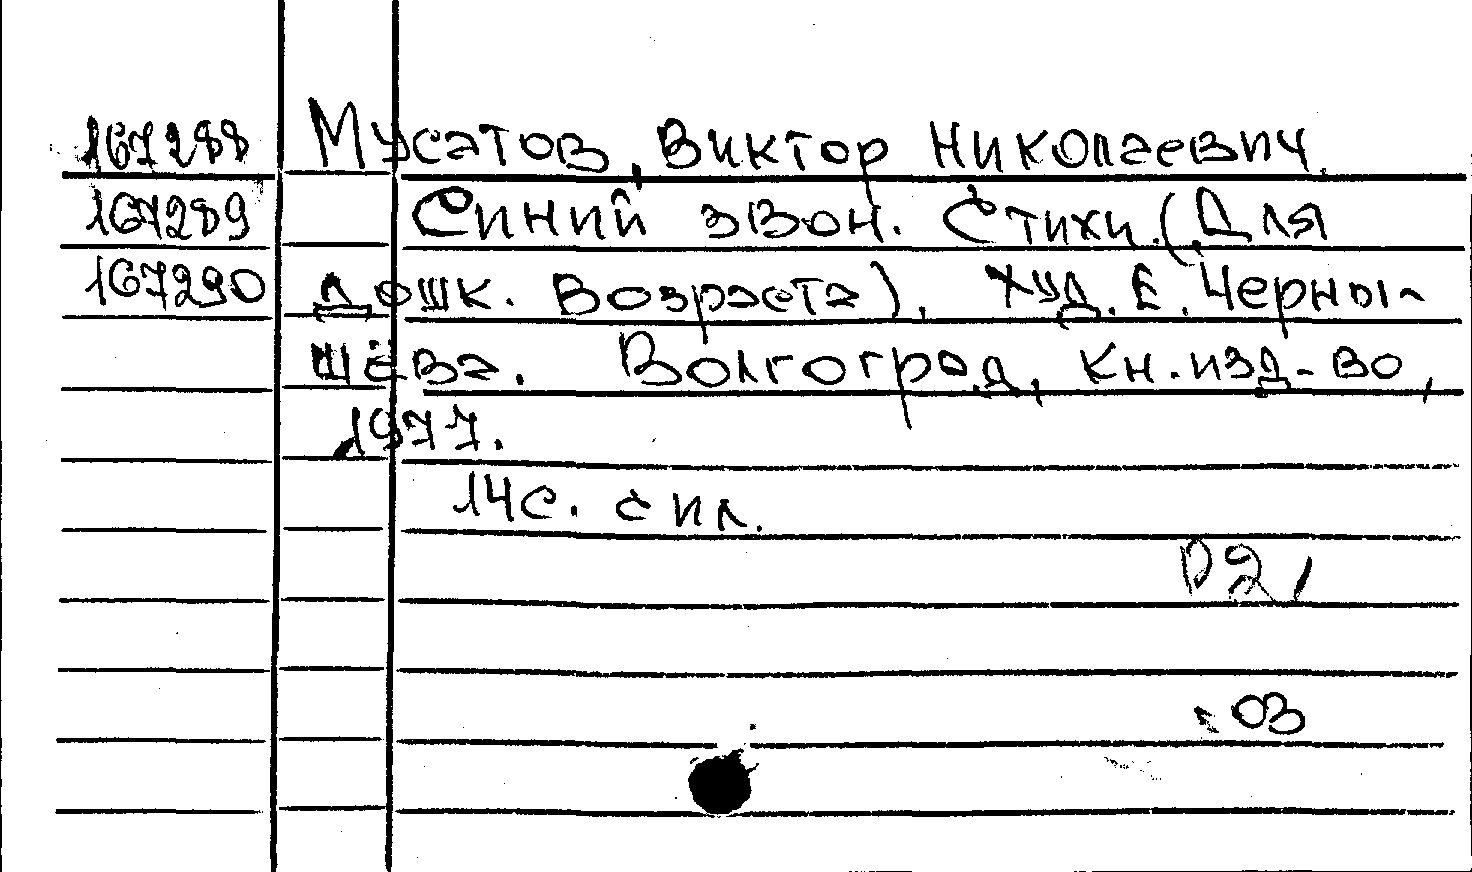 167288 Мусатов, Виктор Николаевич.
167289 Синий звон. Стихи. (Для
167290 дошк. возраста). Худ. Е. Черны-
шёва. Волгоград, кн. изд-во,
1977.
14с. с ил.
Р2
03